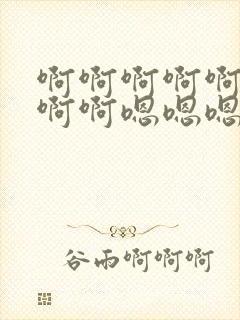 啊啊啊啊啊
啊啊嗯嗯嗯
谷雨啊啊啊